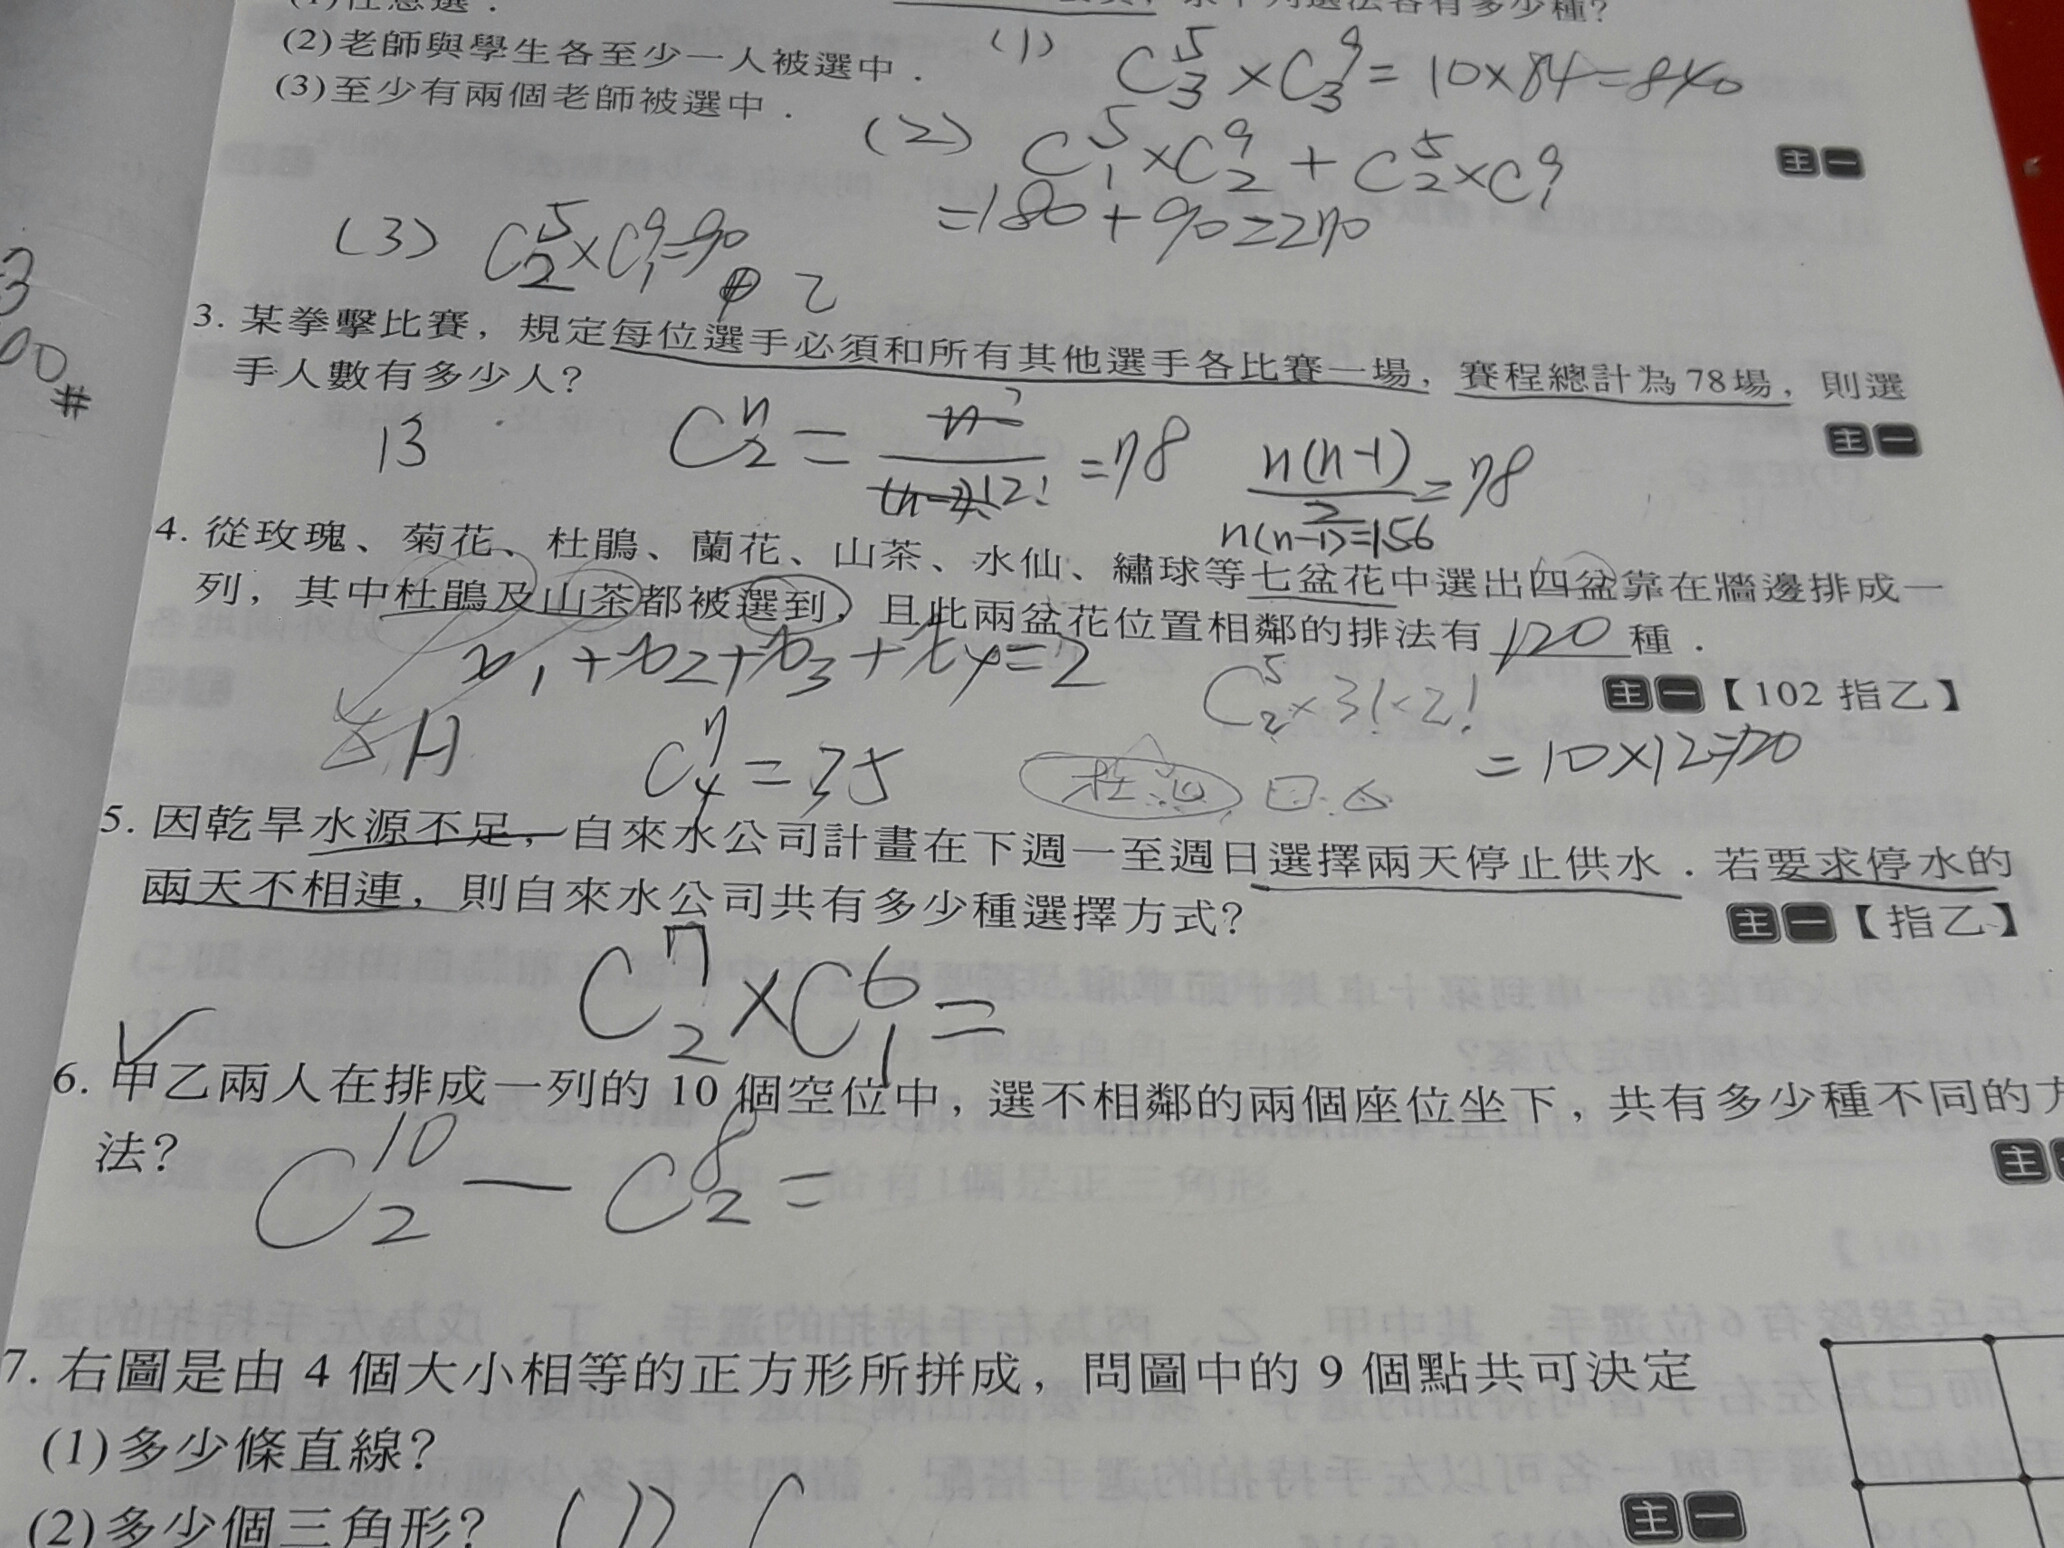 (1)任意選．
求下列選法各有多少種?
(2)老師與學生各至少一人被選中．
(3)至少有兩個老師被選中．
(1) C⁵₃×C⁹₃=10×84=840
(2) C⁵₁×C⁹₂+C⁵₂×C⁹₁
=180+90=270
主一
(3) C⁵₂×C⁹₁=90
3
00#
3. 某拳擊比賽，規定每位選手必須和所有其他選手各比賽一場，賽程總計為78場，則選
手人數有多少人?
主一
13
Cⁿ₂= =78
n(n-1)/2=78
n(n-1)=156
4. 從玫瑰、菊花、杜鵑、蘭花、山茶、水仙、繡球等七盆花中選出四盆靠在牆邊排成一
列，其中杜鵑及山茶都被選到，且此兩盆花位置相鄰的排法有 120 種．
x₁+x₂+x₃+x₄=2
C⁵₂×3!×2!
主一【102 指乙】
H
C⁷₄=35
=10×12=120
5. 因乾旱水源不足，自來水公司計畫在下週一至週日選擇兩天停止供水．若要求停水的
兩天不相連，則自來水公司共有多少種選擇方式?
主一【指乙】
C⁷₂×C⁶₁=
6. 甲乙兩人在排成一列的 10 個空位中，選不相鄰的兩個座位坐下，共有多少種不同的方
法?
主
C¹⁰₂－C⁸₂=
7. 右圖是由 4 個大小相等的正方形所拼成，問圖中的 9 個點共可決定
(1)多少條直線?
(2)多少個三角形?
(1) C
主一